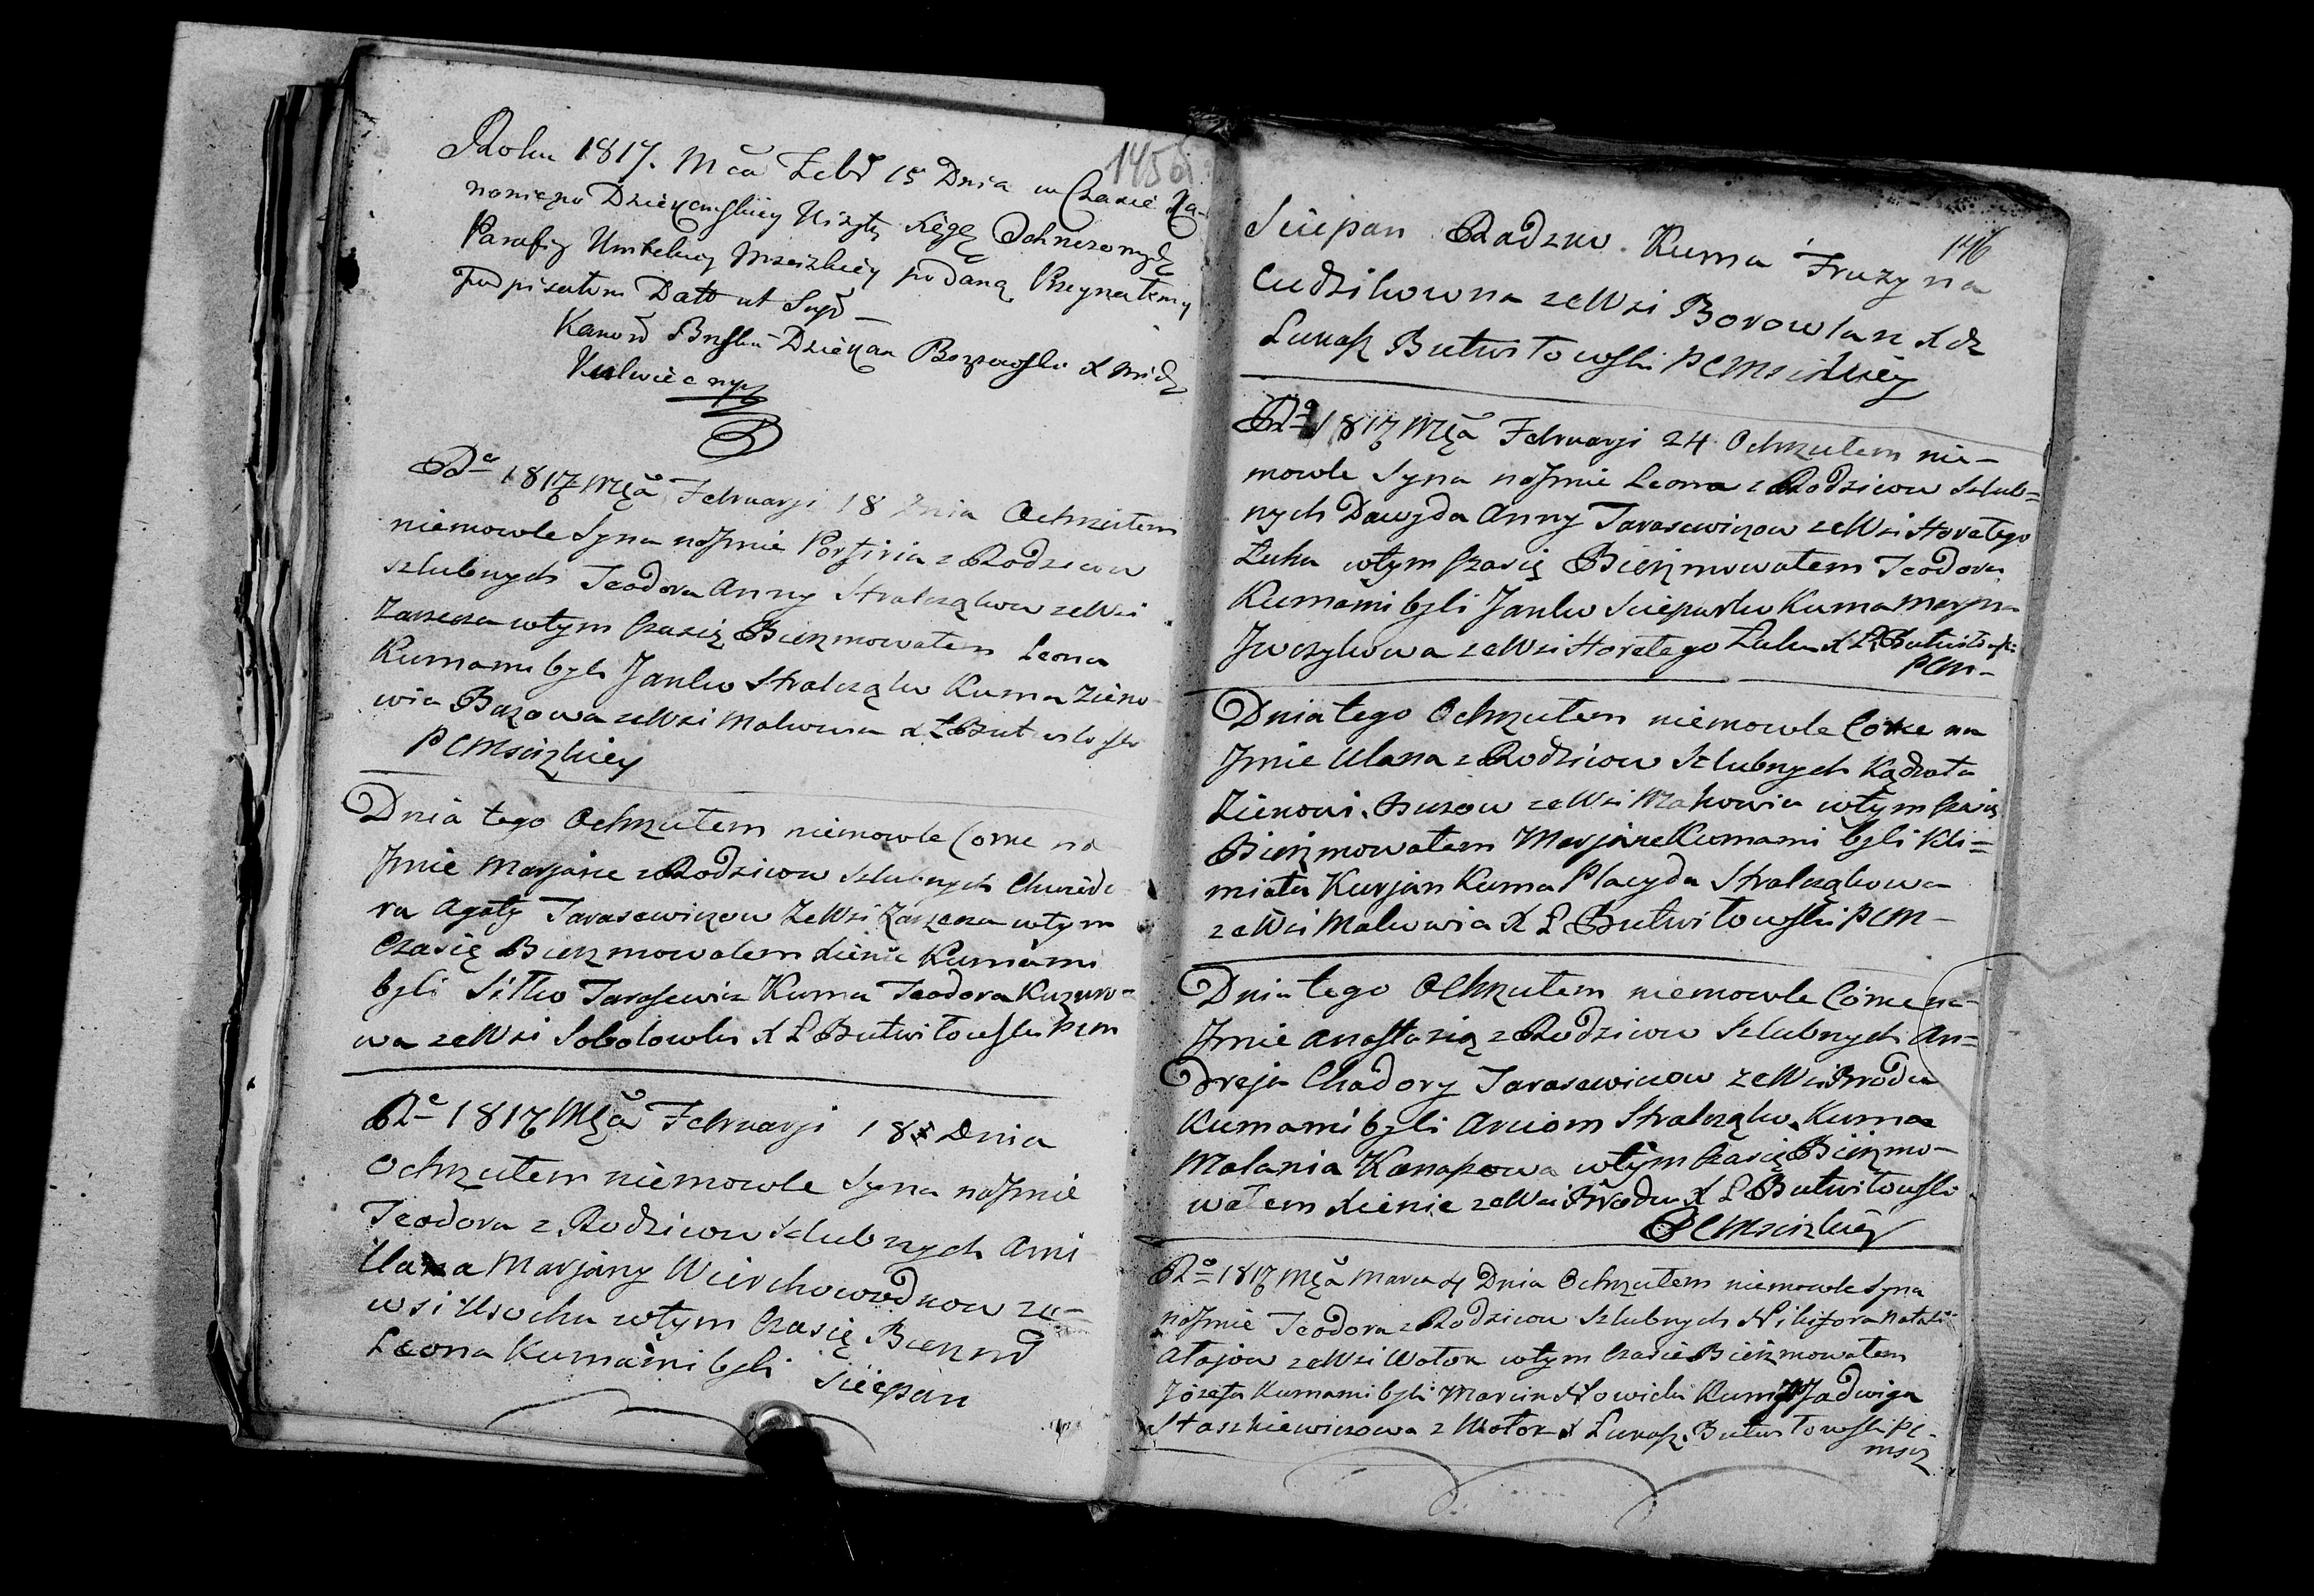 145 ob
Roku 1817. Mca Febr 15 Dnia w Czasie Ka-
nonicznej Dziekanskiey Wizyty Xięgę Ochrzczonych
Parafij Unickiey Mscizkiey podaną Przeyrzałem y
Podpisałem Datt ut Supr
Kanon Brzski Dziekan
Kulwiec mp
Ro 1817 Mca Februarji 18 Dnia Ochrzciłem
niemowle Syna na Jmie Porfiria z Rodzicow
szlubnych Teodora Anny Stralcząkow ze Wsi
Zarzecza w tym Czasię Bierzmowałem Leona
Kumami byli Janko Stralcząko Kuma Zieno
wia Buzowa ze Wsi Makowia X Ł But
PCMscizkiey
Dnia tego Ochrzciłem niemowle Corke na
Jmie Marjane z Rodzicow Szlubnych Chwiedo
ra Agaty Tarasewiczow Ze Wsi Zarzecza w tym
Czasię Bierzmowałem Xienie Kumami
byli Siłko Tarasewicz Kuma Teodora
wa ze Wsi Sobolowki X Ł Butwiłowski PCM
Ro 1817 Mca Februarji 18 Dnia
Ochrzciłem niemowle Syna na Jmie
Teodora z Rodzicow szlubnych Ami
Marjany Wierchowodkow ze
wsi Usochu w tym Czasię Bierzm
Leona Kumami byli Sciepan
146
Sciepan Radzko Kuma Fruzyna
Cudzikowna ze Wsi Borowlan Xdz
Łukasz Butwiłowski PCMscizkiey
Ro 1817 Mca Februarji 24 Ochrzciłem nie-
mowle Syna na Jmie Leona z Rodzicow Szlub=
nych Dawyda Anny Tarasewiczow ze Wsi Horełego
Łuha w tym Czasię Bierzmowałem Teodora
Kumami byli Janko Kuma Maryna
ze Wsi Horełego Łuhu X Ł Butwiłowski
PCM-
Dnia tego Ochrzciłem niemowle Corke na
Jmie Ulana z Rodzicow Szlubnych Kądrata
Zienowi Buzow ze Wsi Makowia w tym Czasię
Bierzmowałem Marjane Kumami byli Kli=
miata Kurjan Kuma Placyda Stralcząkowa
ze Wsi Makowia X Ł Butwiłowski PCM-
Dnia tego Ochrzciłem niemowle Córke na
Jmie Anastazią z Rodzicow Szlubnych An=
dreja Chadory Tarasewiczow ze Wsi Brodu
Kumami byli Arciom Stralcząko Kuma
Malania Kanaszowa w tym Czasię Bierzmo-
wałem Xienie ze Wsi Brodu X Ł Butwiłowski
PCMscizkiey
Ro 1817 Mca Marca 4 Dnia Ochrzciłem niemowle Syna
na Jmie Teodora z Rodzicow Szlubnych Nikifora Natali
Atajow ze Wsi Wotok w tym Czasie Bierzmowałem
Józefa Kumami byli Marcin Nowicki Kuma Jadwiga
Staszkiewiczowa z Wotok X Łukasz Butwiłowski PC
Mscz